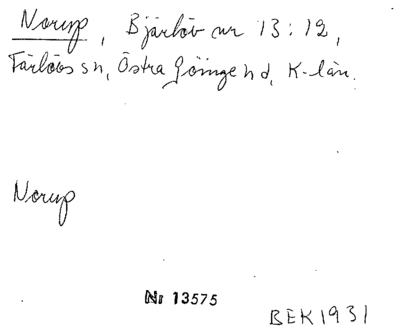 Norup, Bjärlöv nr 13:12,
Färlövs sn, Östra Göinge hd, K-län.
Norup
Nr 13575
BEK1931